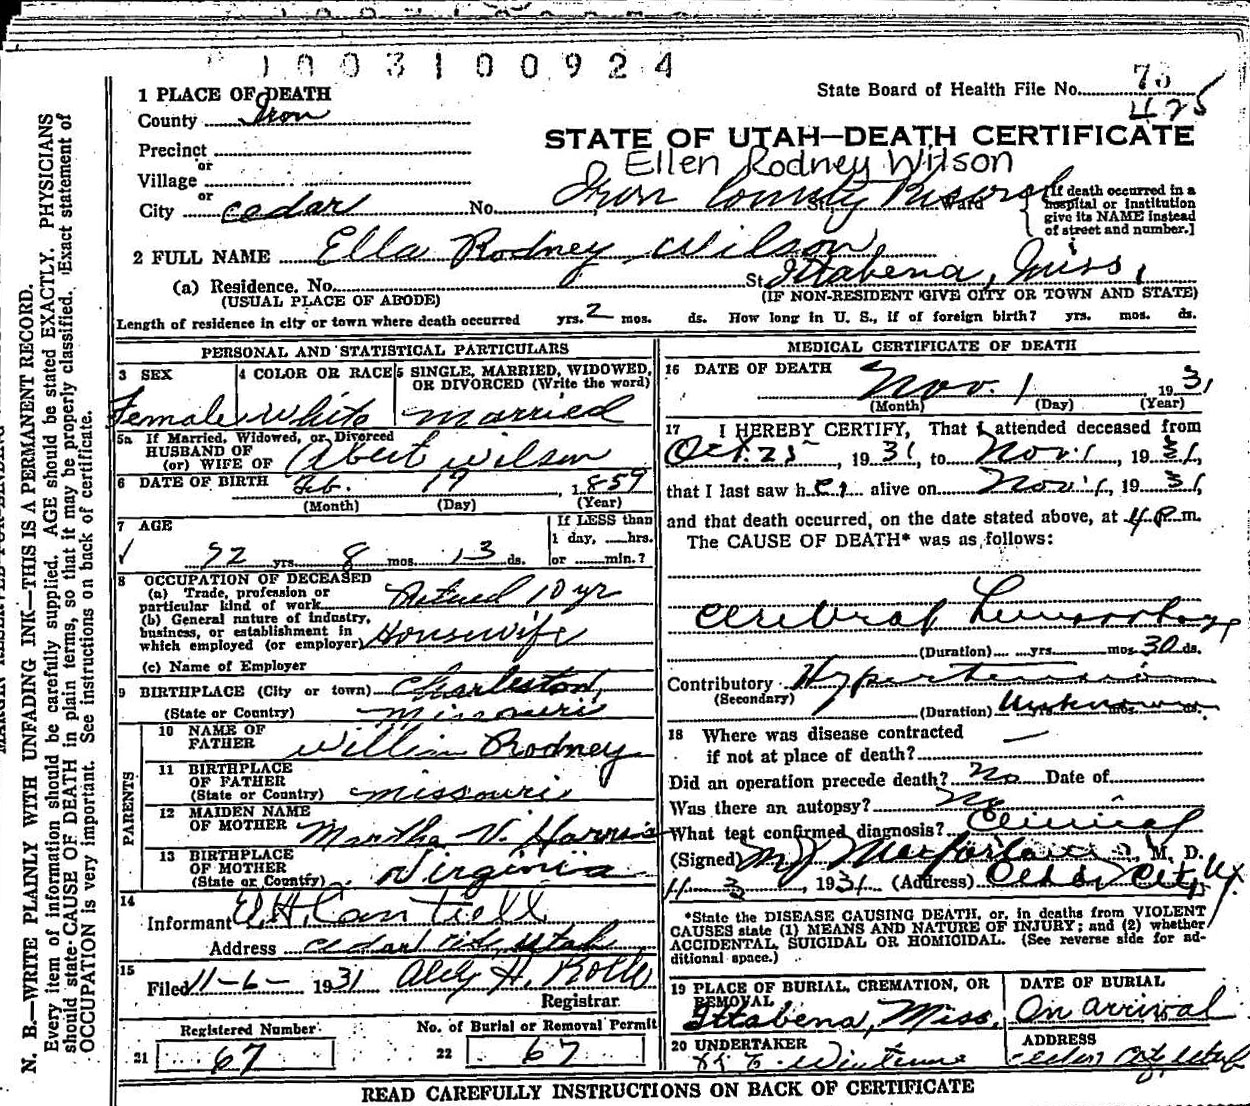 1003100924
State Board of Health File No. 75
425
1 PLACE OF DEATH
County Iron
STATE OF UTAH—DEATH CERTIFICATE
Precinct
or
Village
Ellen Rodney Wilson
or
City Cedar No. Iron County St., Ward
[If death occurred in a hospital or institution give its NAME instead of street and number.]
2 FULL NAME Ella Rodney Wilson
(a) Residence. No. St. Ittabena, Miss.
(USUAL PLACE OF ABODE) (IF NON-RESIDENT GIVE CITY OR TOWN AND STATE)
Length of residence in city or town where death occurred yrs. 2 mos. ds. How long in U. S., if of foreign birth? yrs. mos. ds.
PERSONAL AND STATISTICAL PARTICULARS
3 SEX 4 COLOR OR RACE 5 SINGLE, MARRIED, WIDOWED,
OR DIVORCED (Write the word)
Female White Married
5a If Married, Widowed, or Divorced
HUSBAND OF
(or) WIFE OF Abert Wilson
6 DATE OF BIRTH Feb. 19, 1859
(Month) (Day) (Year)
7 AGE If LESS than
1 day, hrs.
72 yrs. 8 mos. 13 ds. or min.?
8 OCCUPATION OF DECEASED
(a) Trade, profession or
particular kind of work Retired 10 yr
(b) General nature of industry,
business, or establishment in
which employed (or employer) Housewife
(c) Name of Employer
9 BIRTHPLACE (City or town) Charleston,
(State or Country) Missouri
PARENTS
10 NAME OF
FATHER William Rodney
11 BIRTHPLACE
OF FATHER
(State or Country) Missouri
12 MAIDEN NAME
OF MOTHER Martha V. Harris
13 BIRTHPLACE
OF MOTHER
(State or Country) Virginia
14
Informant W.H. Cantrell
Address Cedar City, Utah
15
Filed 11-6- 1931
Registrar
Registered Number No. of Burial or Removal Permit
21 67 22 67
MEDICAL CERTIFICATE OF DEATH
16 DATE OF DEATH
Nov. 1 1931
(Month) (Day) (Year)
17 I HEREBY CERTIFY, That I attended deceased from
Oct. 25, 1931, to Nov. 1, 1931,
that I last saw her alive on Nov. 1, 1931,
and that death occurred, on the date stated above, at 4 P.m.
The CAUSE OF DEATH* was as follows:
Cerebral Hemorrhage
(Duration) yrs. mos. 30 ds.
Contributory Hypertension
(Secondary)
(Duration) Unknown yrs. mos. ds.
18 Where was disease contracted
if not at place of death?
Did an operation precede death? No Date of
Was there an autopsy? No
What test confirmed diagnosis? Clinical
(Signed) M.J. Macfarlane, M. D.
11-3, 1931 (Address) Cedar City, Ut.
*State the DISEASE CAUSING DEATH, or, in deaths from VIOLENT
CAUSES state (1) MEANS AND NATURE OF INJURY; and (2) whether
ACCIDENTAL, SUICIDAL OR HOMICIDAL. (See reverse side for ad-
ditional space.)
19 PLACE OF BURIAL, CREMATION, OR DATE OF BURIAL
REMOVAL
Ittabena, Miss. On arrival
20 UNDERTAKER ADDRESS
Cedar City, Utah
READ CAREFULLY INSTRUCTIONS ON BACK OF CERTIFICATE
N. B.—WRITE PLAINLY WITH UNFADING INK—THIS IS A PERMANENT RECORD.
Every item of information should be carefully supplied. AGE should be stated EXACTLY. PHYSICIANS
should state CAUSE OF DEATH in plain terms, so that it may be properly classified. Exact statement of
OCCUPATION is very important. See instructions on back of certificate.